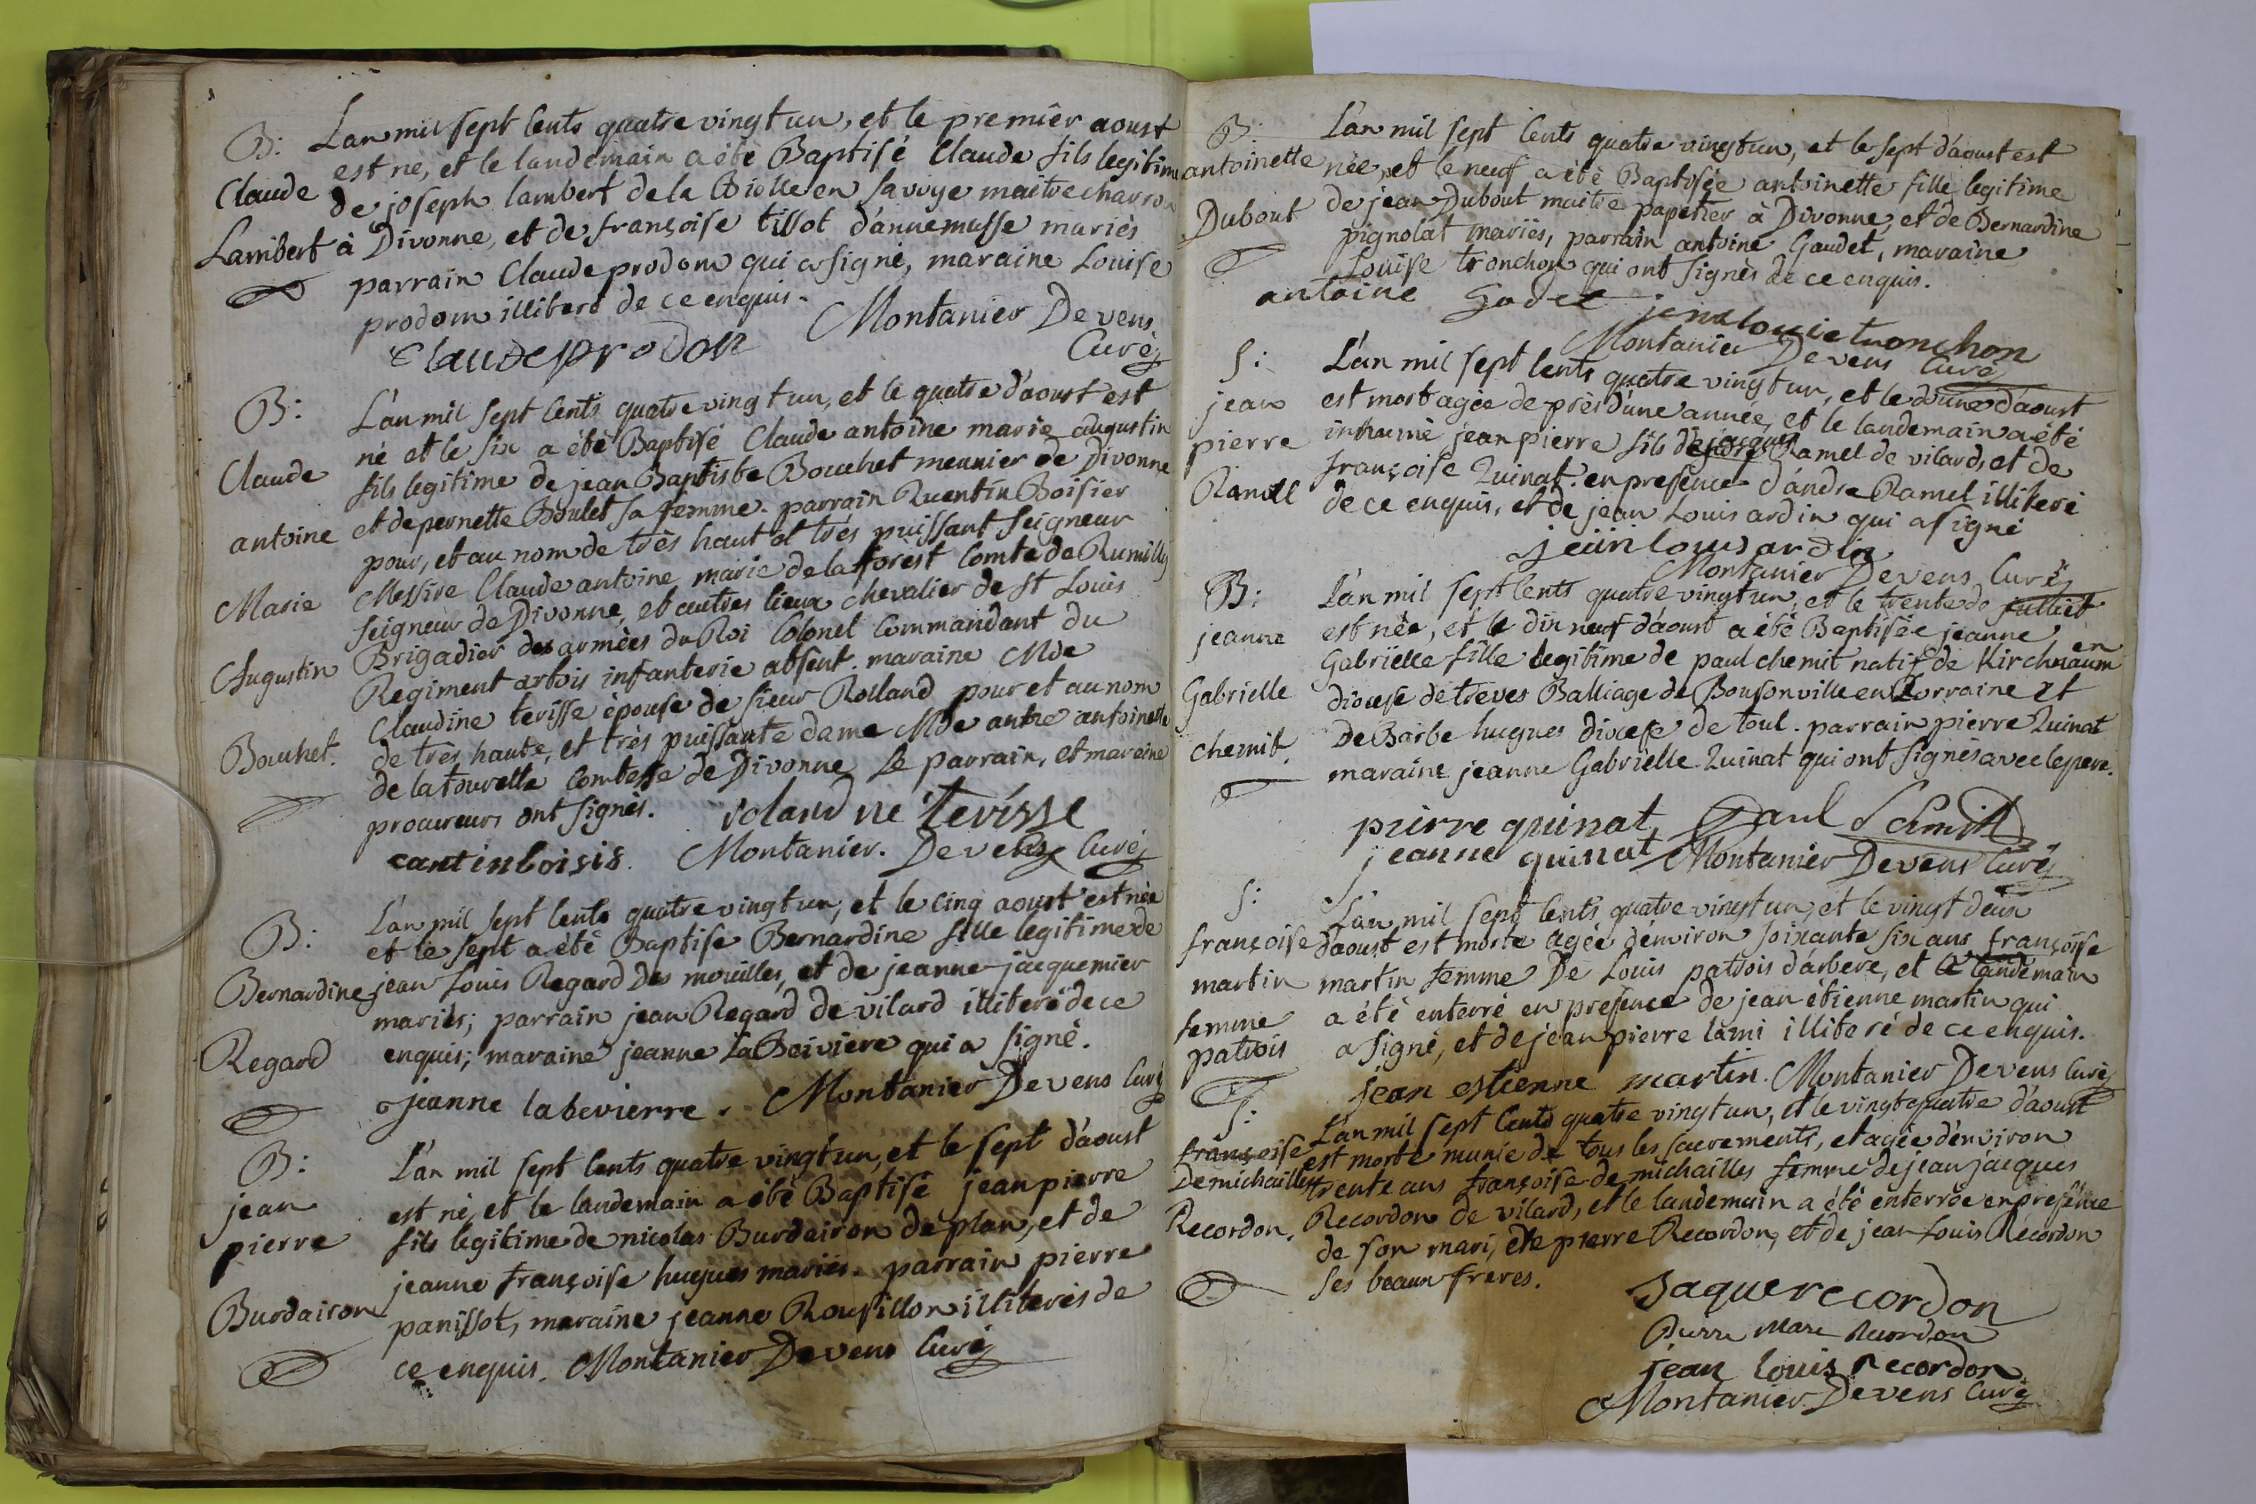 B:
Claude
Lambert
L'an mil sept cents quatre vingt un, et le premiêr aoust
est ne, et le landemain a été Baptisé Claude fils legitime
de joseph lambert de la Biolle en savoye maitre charron
à Divonne, et de françoise tissot d'annemasse mariés
parrain Claude prodom qui a signé, maraine Louise
prodom illiteré de ce enquis. Montanier Devens
Claude prodon Curé
B:
Claude
antoine
Marie
Augustin
Bouchet.
L'an mil sept cents quatre vingt un, et le quatre d'aoust est
né et le six a été Baptisé Claude antoine marie augustin
fils legitime de jean Baptiste Bouchet meunier de Divonne
et de pernette Boulet sa femme. parrain Quentin Boisier
pour, et au nom de très haut et très puissant seigneur
Messire Claude antoine marie de la forest Comte de Rumilly
seigneur de Divonne, et autres lieux chevalier de St Louis
Brigadier des armées du Roi Colonel Commandant du
Regiment artois infanterie absent. maraine Mde
Claudine terisse épouse de sieur Rolland pour et au nom
de très haute, et très puissante dame Mde antre antoinette
de la tourelle Comtesse de Divonne Le parrain, et maraine
procureurs ont signés. roland né Terisse
cantin boisis. Montanier. Devens Curé
B:
Bernardine
Regard
L'an mil sept cents quatre vingt un, et le cinq aoust est née
et le sept a été Baptise Bernardine fille legitime de
jean Louis Regard Des mouilles, et de jeanne jacquemier
mariés; parrain jean Regard de vilard illiteré de ce
enquis; maraine jeanne La Beiviere qui a signé.
jeanne labevierre. Montanier Devens Curé
B:
jean
pierre
Burdairon
L'an mil sept cents quatre vingt un, et le sept d'aoust
est né, et le landemain a été Baptisé jean pierre
fils legitime de nicolas Burdairon de plan, et de
jeanne françoise hugues mariés. parrain pierre
panissot, maraine jeanne Rousillon illiterés de
ce enquis. Montanier Devens Curé
B:
antoinette
Dubout
L'an mil sept cents quatre vingt un, et le sept d'aoust est
née, et le neuf a été Baptisée antoinette fille legitime
de jean Dubout maitre papetier à Divonne, et de Bernardine
pignolat mariés, parrain antoine Gaudet, maraine
Louise tronchon qui ont signés de ce enquis.
antoine Godet jenz louise tronchon
Montanier Devens Curé
S:
jean
pierre
Ramel
L'an mil sept cents quatre vingt un, et le d'aoust
est mort agée de près d'une année, et le landemain a été
inhumé jean pierre fils de jacques Ramel de vilard, et de
françoise Quinat. en presence d'andre Ramel illiteré
de ce enquis, et de jean Louis ardin qui a signé
jean louis ardin
Montanier Devens Curé
B:
jeanne
Gabrielle
chemit.
L'an mil sept cents quatre vingt un, et le trente de juilliet
est née, et le dix neuf d'aoust a été Baptisée jeanne
Gabrielle fille legitime de paul chemit natif de Kirchnaum en
diocese de treves Balliage de Bousonville en Lorraine et
De Barbe hugues diocese de toul. parrain pierre Quinat
maraine jeanne Gabrielle Quinat qui ont signés avec le pere.
pierre quinat, Paul Schmitt
jeanne quinat Montanier Devens Curé
S:
françoise
martin
femme
patrois
L'an mil sept cents quatre vingt un, et le vingt deux
d'aoust est morte agée d'environ soixante six ans françoise
martin femme De Louis patrois d'arbere, et le landemain
a été enterré en presence de jean étienne martin qui
a signé, et de jean pierre lami illiteré de ce enquis.
jean estienne martin. Montanier Devens Curé
S:
françoise
Demichailles
Recordon.
L'an mil sept cents quatre vingt un, et le vingt quatre d'aoust
est morte munie de tous les sacrements, et agée d'environ
trente ans françoise de michailles femme de jean jacques
Recordon de vilard, et le landemain a été enterrée en presence
de son mari, de pierre Recordon, et de jean Louis Recordon
ses beaux freres.
Jaque recordon
Pierre Marc Recordon
jean louis recordon
Montanier Devens Curé